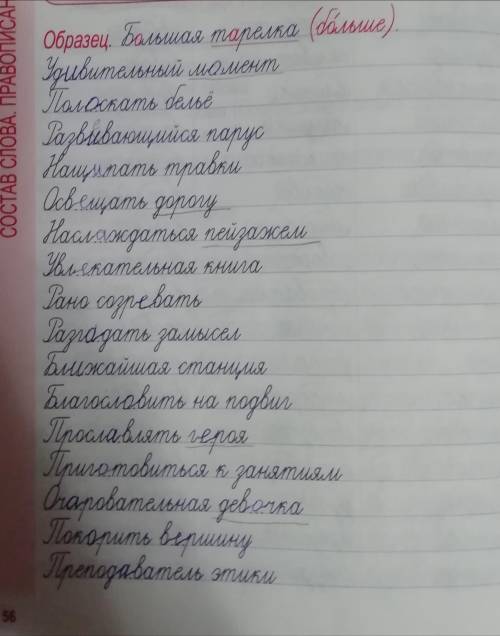 СОСТАВ СЛОВА. ПРАВОПИСАН
Образец. Большая тарелка (бо́льше).
Удивительный момент
Полоскать бельё
Развивающийся парус
Нащипать травки
Освещать дорогу
Наслаждаться пейзажем
Увлекательная книга
Рано созревать
Разгадать замысел
Ближайшая станция
Благословить на подвиг
Прославлять героя
Приготовиться к занятиям
Очаровательная девочка
Покорить вершину
Преподаватель этики
56